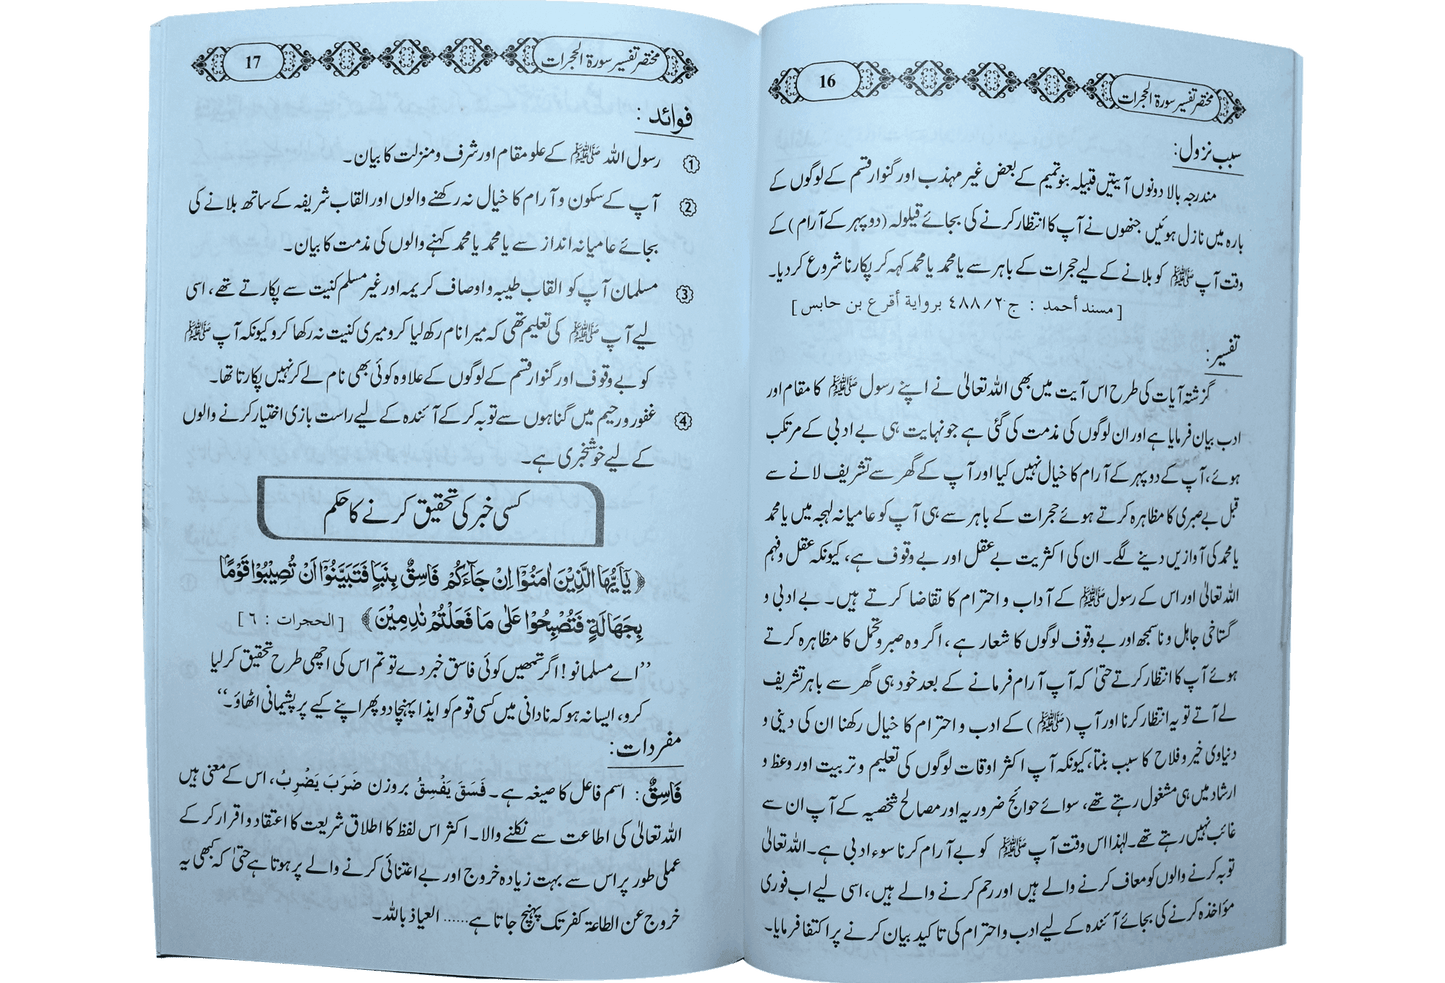 مختصر تفسیر سورۃ الحجرات 16
سبب نزول:
مندرجہ بالا دونوں آیتیں قبیلہ بنو تمیم کے بعض غیر مہذب اور گنوار قسم کے لوگوں کے
بارہ میں نازل ہوئیں جنھوں نے آپ کا انتظار کرنے کی بجائے قیلولہ (دوپہر کے آرام) کے
وقت آپ ﷺ کو بلانے کے لیے حجرات کے باہر سے یا محمد یا محمد کہہ کر پکارنا شروع کر دیا۔
[مسند أحمد : ج٤٨٨/٢٠ برواية أقرع بن حابس]
تفسیر:
گزشتہ آیات کی طرح اس آیت میں بھی اللہ تعالیٰ نے اپنے رسول ﷺ کا مقام اور
ادب بیان فرمایا ہے اور ان لوگوں کی مذمت کی گئی ہے جو نہایت ہی بے ادبی کے مرتکب
ہوئے، آپ کے دوپہر کے آرام کا خیال نہیں کیا اور آپ کے گھر سے تشریف لانے سے
قبل بے صبری کا مظاہرہ کرتے ہوئے حجرات کے باہر سے ہی آپ کو عامیانہ لہجہ میں یا محمد
یا محمد کی آوازیں دینے لگے۔ ان کی اکثریت بے عقل اور بے وقوف ہے، کیونکہ عقل و فہم
اللہ تعالیٰ اور اس کے رسول ﷺ کے آداب و احترام کا تقاضا کرتے ہیں۔ بے ادبی و
گستاخی جاہل و ناسمجھ اور بے وقوف لوگوں کا شعار ہے، اگر وہ صبر و تحمل کا مظاہرہ کرتے
ہوئے آپ کا انتظار کرتے حتیٰ کہ آپ آرام فرمانے کے بعد خود ہی گھر سے باہر تشریف
لے آتے تو یہ انتظار کرنا اور آپ (ﷺ) کے ادب و احترام کا خیال رکھنا ان کی دینی و
دنیاوی خیر و فلاح کا سبب بنتا، کیونکہ آپ اکثر اوقات لوگوں کی تعلیم و تربیت اور وعظ و
ارشاد میں ہی مشغول رہتے تھے، سوائے حوائج ضروریہ اور مصالح شخصیہ کے آپ ان سے
غائب نہیں رہتے تھے۔ لہٰذا اس وقت آپ ﷺ کو بے آرام کرنا سوء ادبی ہے۔ اللہ تعالیٰ
توبہ کرنے والوں کو معاف کرنے والے ہیں اور رحم کرنے والے ہیں، اسی لیے اب فوری
مؤاخذہ کرنے کی بجائے آئندہ کے لیے ادب و احترام کی تاکید بیان کرنے پر اکتفا فرمایا۔
مختصر تفسیر سورۃ الحجرات 17
فوائد:
① رسول اللہ ﷺ کے علو مقام اور شرف و منزلت کا بیان۔
② آپ کے سکون و آرام کا خیال نہ رکھنے والوں اور القاب شریفہ کے ساتھ بلانے کی
بجائے عامیانہ انداز سے یا محمد یا محمد کہنے والوں کی مذمت کا بیان۔
③ مسلمان آپ کو القاب طیبہ و اوصاف کریمہ اور غیر مسلم کنیت سے پکارتے تھے، اسی
لیے آپ ﷺ کی تعلیم تھی کہ میرا نام رکھ لیا کرو میری کنیت نہ رکھا کرو کیونکہ آپ ﷺ
کو بے وقوف اور گنوار قسم کے لوگوں کے علاوہ کوئی بھی نام لے کر نہیں پکارتا تھا۔
④ غفور و رحیم میں گناہوں سے توبہ کر کے آئندہ کے لیے راست بازی اختیار کرنے والوں
کے لیے خوشخبری ہے۔
کسی خبر کی تحقیق کرنے کا حکم
﴿يٰٓاَيُّهَا الَّذِيْنَ اٰمَنُوْٓا اِنْ جَآءَكُمْ فَاسِقٌۢ بِنَبَاٍ فَتَبَيَّنُوْٓا اَنْ تُصِيْبُوْا قَوْمًاۢ
بِجَهَالَةٍ فَتُصْبِحُوْا عَلٰى مَا فَعَلْتُمْ نٰدِمِيْنَ﴾ [الحجرات : ٦]
’’اے مسلمانو! اگر تمھیں کوئی فاسق خبر دے تو تم اس کی اچھی طرح تحقیق کر لیا
کرو، ایسا نہ ہو کہ نادانی میں کسی قوم کو ایذا پہنچا دو پھر اپنے کیے پر پشیمانی اٹھاؤ۔‘‘
مفردات:
فَاسِقٌ: اسم فاعل کا صیغہ ہے۔ فَسَقَ يَفْسِقُ بروزن ضَرَبَ يَضْرِبُ، اس کے معنی ہیں
اللہ تعالیٰ کی اطاعت سے نکلنے والا۔ اکثر اس لفظ کا اطلاق شریعت کا اعتقاد و اقرار کر کے
عملی طور پر اس سے بہت زیادہ خروج اور بے اعتنائی کرنے والے پر ہوتا ہے حتیٰ کہ کبھی یہ
خروج عن الطاعۃ کفر تک پہنچ جاتا ہے...... العیاذ باللہ۔